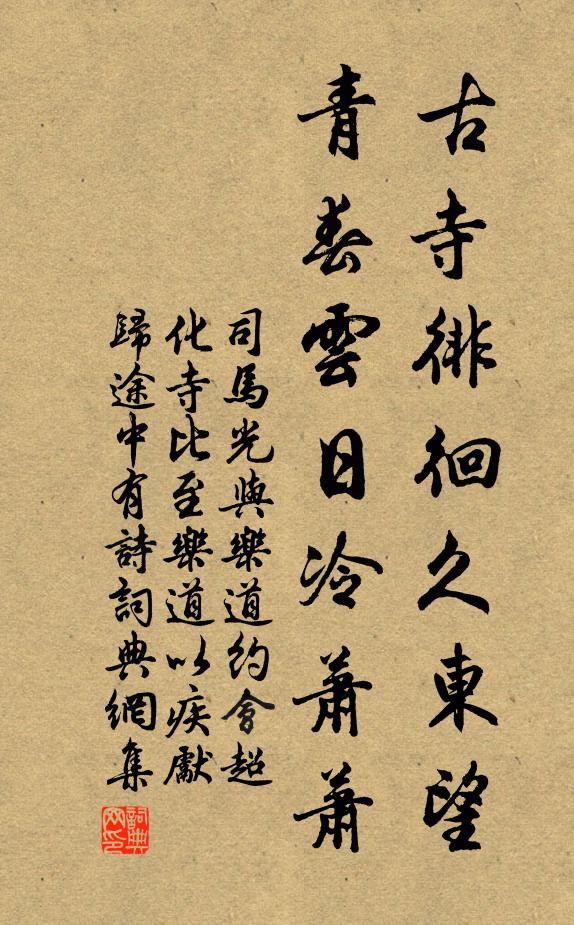 古寺徘徊久東望
青春雲日冷蕭蕭
司馬光與樂道約會超
化寺比至樂道以疾獻
歸途中有詩詞典網集
詞典网印